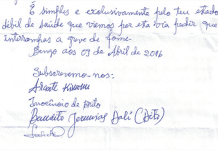 É simples e exclusivamente pelo teu estado
débil de saúde que viemos por esta via pedir que
interrompas a greve de fome.
Bengo aos 09 de Abril de 2016
Subscrevemo-nos:
Inocêncio de Brito
Benedito Jeremias Dali (Dito)